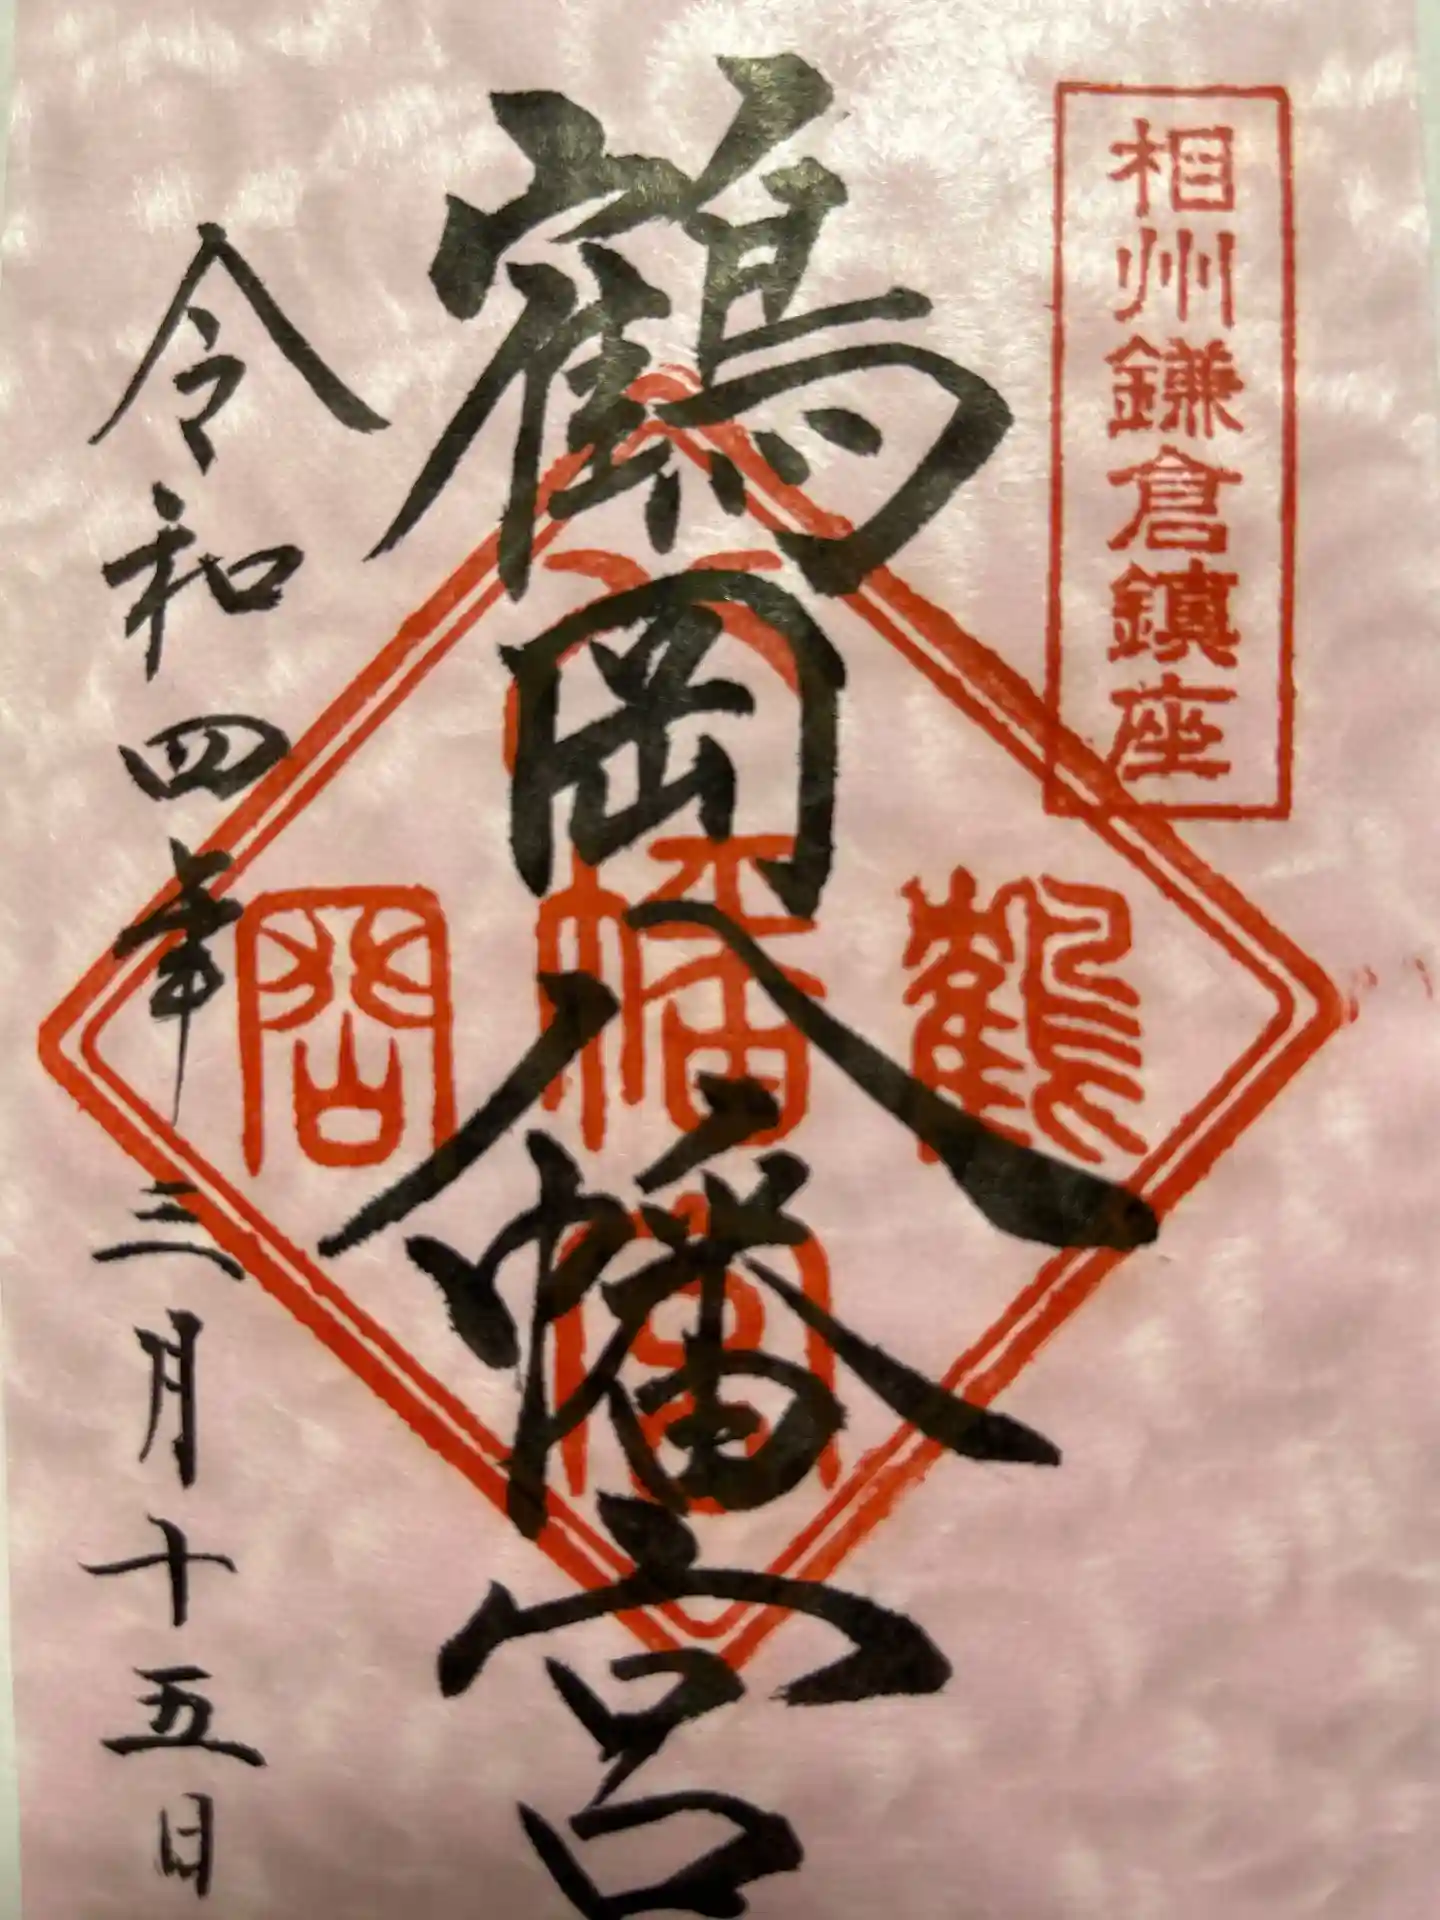 相州鎌倉鎮座
鶴岡八幡宮
八
鶴
幡
岡
宮
令和四年三月十五日